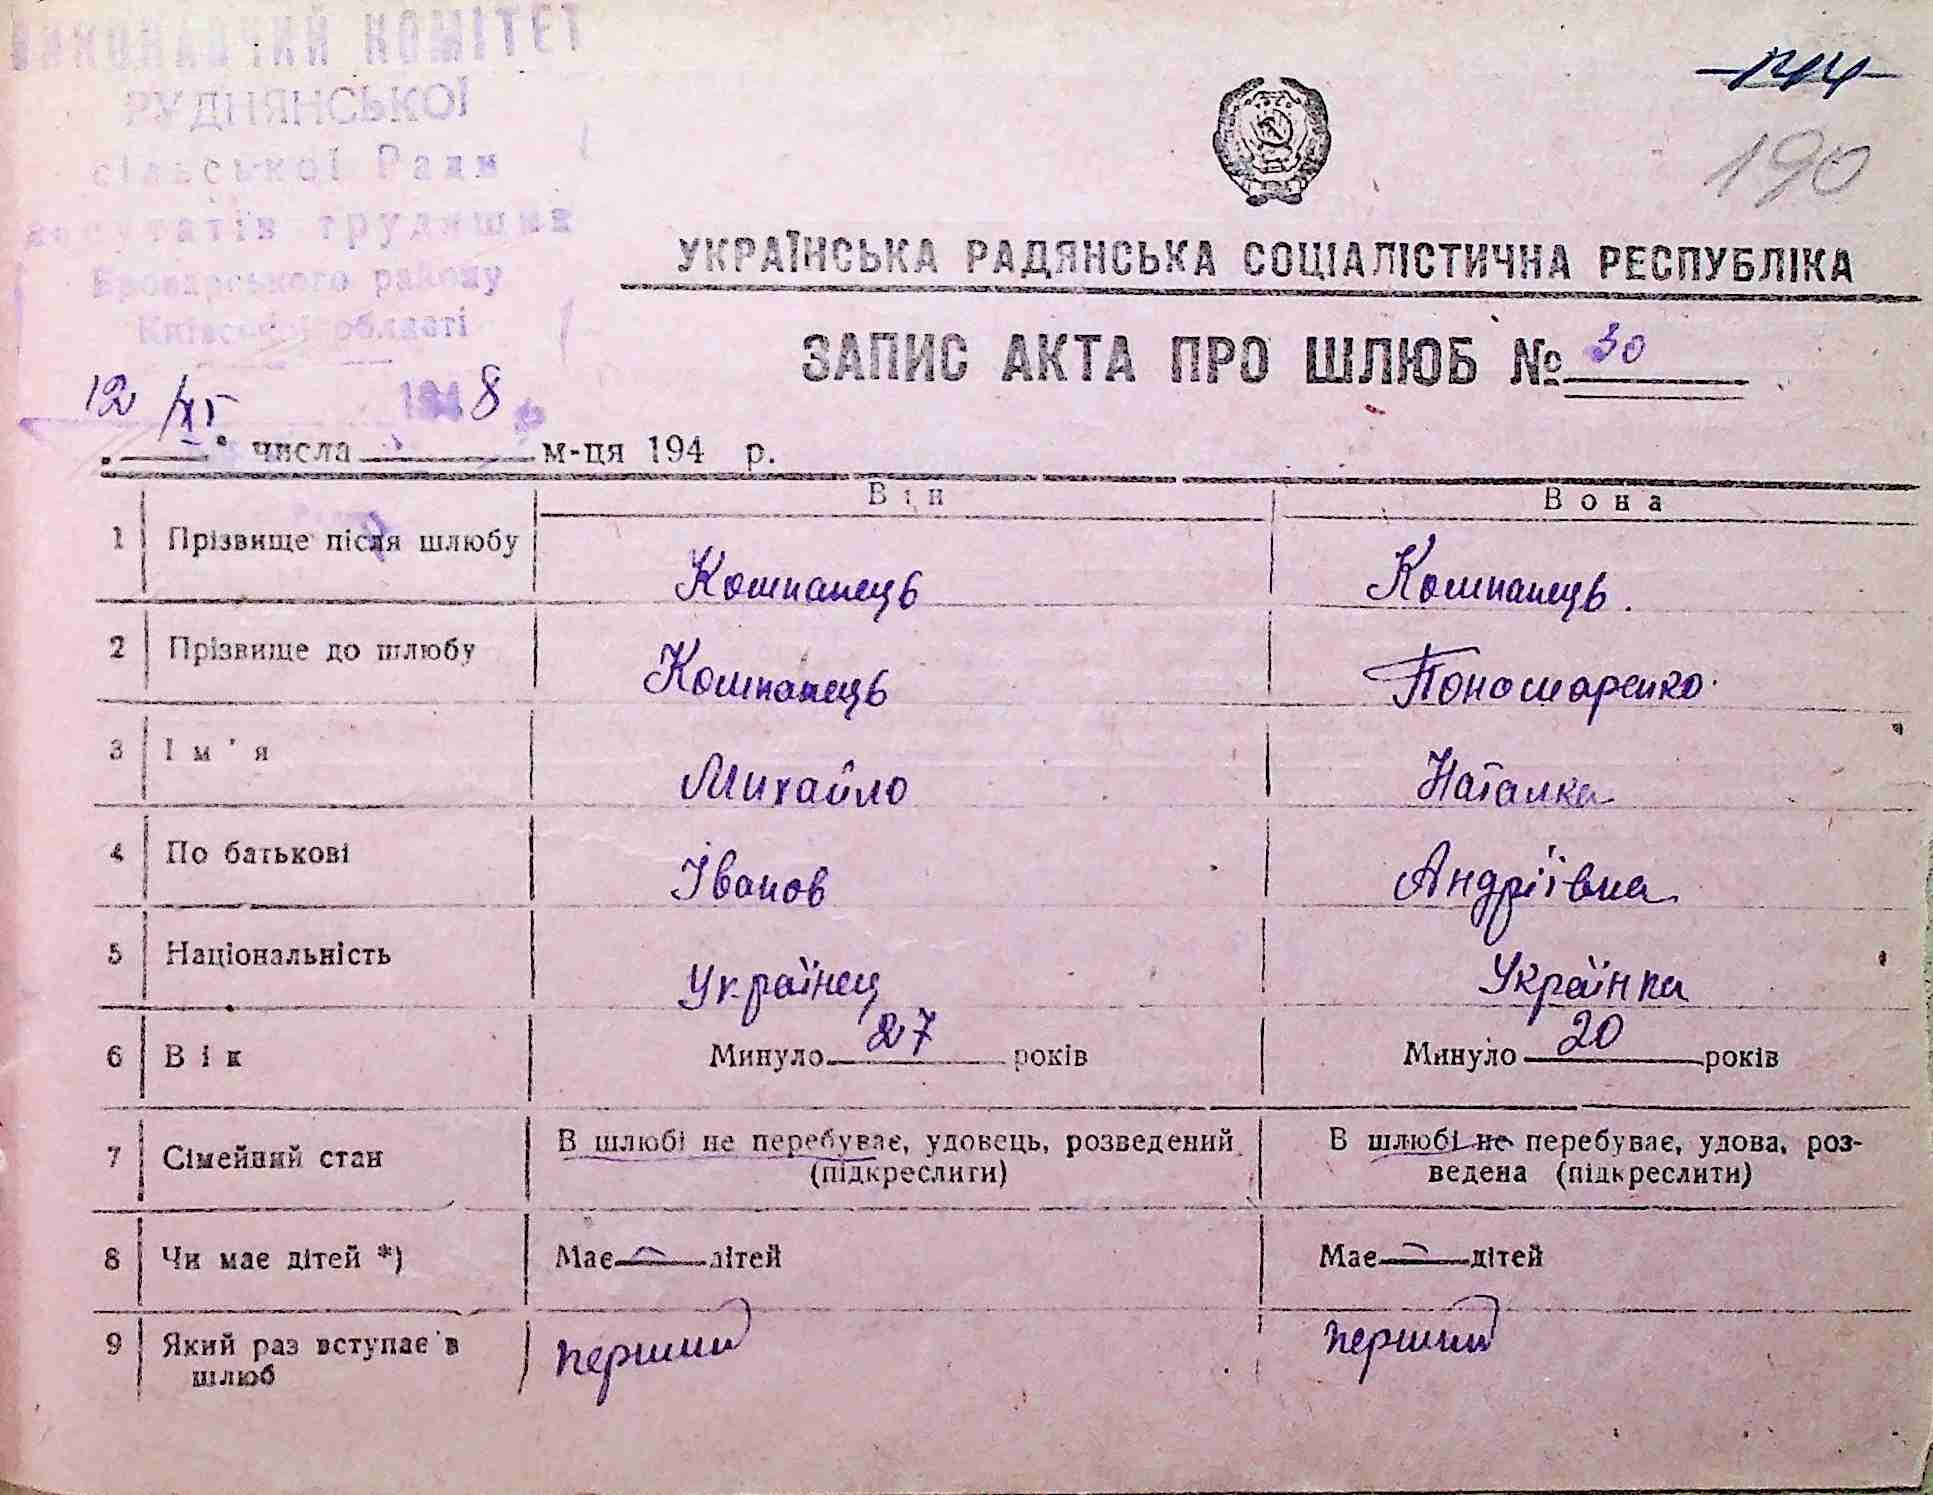 ВИКОНАВЧИЙ КОМІТЕТ
РУДНЯНСЬКОЇ
сільської Ради
депутатів трудящих
Броварського району
Київської області
12/XI 1948
190
УКРАЇНСЬКА РАДЯНСЬКА СОЦІАЛІСТИЧНА РЕСПУБЛІКА
ЗАПИС АКТА ПРО ШЛЮБ № 30
числа м-ця 194 р.
Він Вона
1 Прізвище після шлюбу Кошпанець Кошпанець.
2 Прізвище до шлюбу Кошпанець Пономаренко.
3 Ім'я Михайло Наталка
4 По батькові Іванов Андріївна
5 Національність Українец Українка
6 Вік Минуло 27 років Минуло 20 років
7 Сімейний стан В шлюбі не перебуває, удовець, розведений (підкреслити) В шлюбі не перебуває, удова, роз-
ведена (підкреслити)
8 Чи має дітей *) Має — дітей Має — дітей
9 Який раз вступає в шлюб перший перший